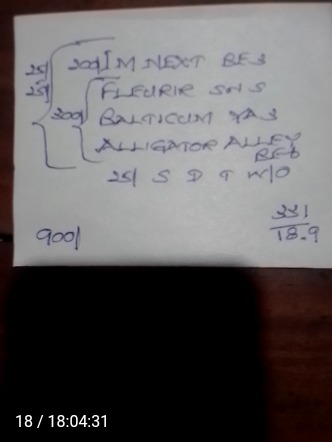 25/ 200/ I M NEXT BE3
25/ FLEURIR SNS
300/ BALTICUM YA3
ALLIGATOR ALLEY
BE6
25/ S D T W/O
900/
331
18.9
18 / 18:04:31